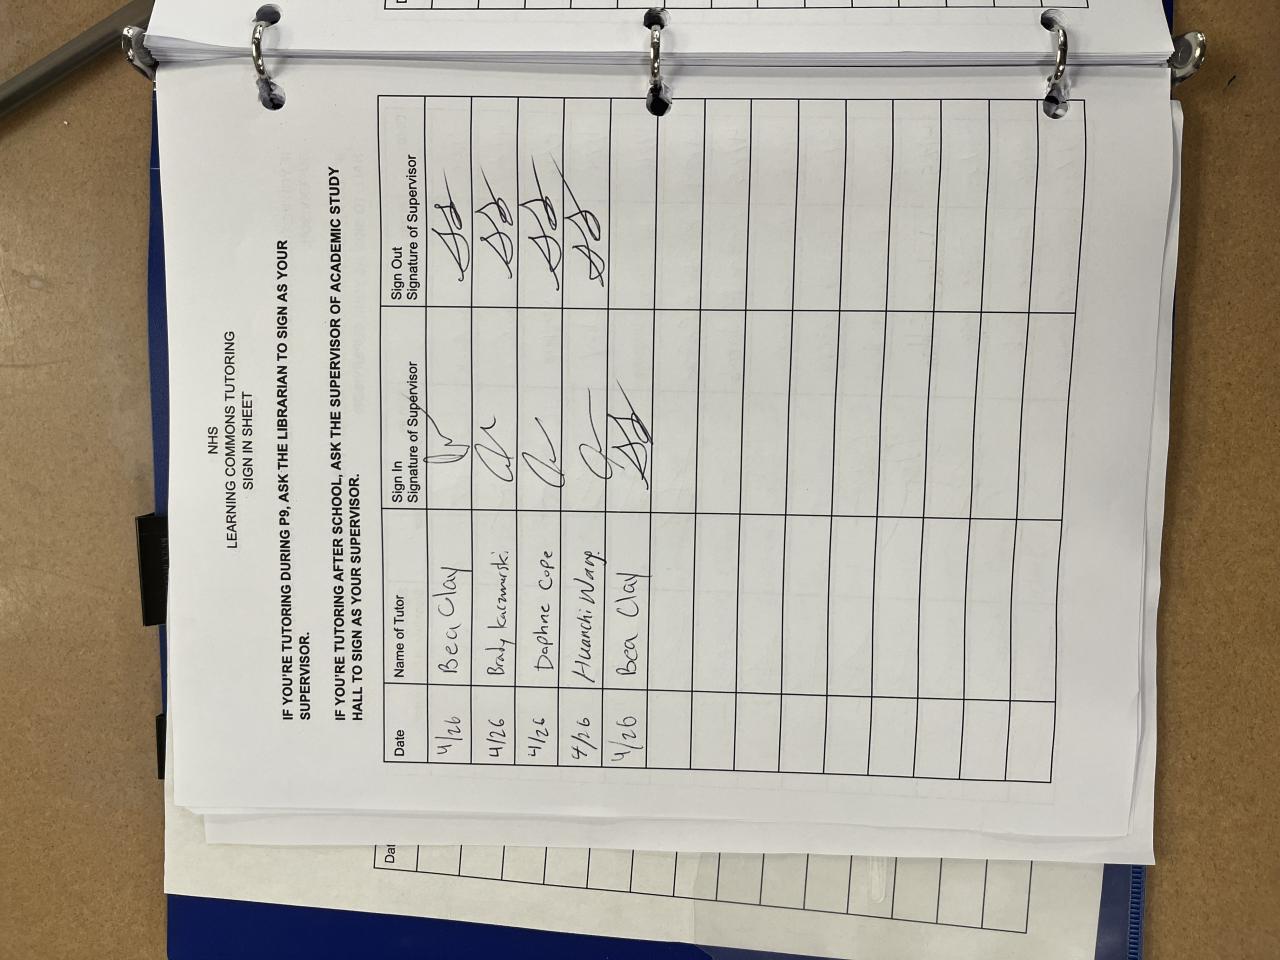 NHS
LEARNING COMMONS TUTORING
SIGN IN SHEET
IF YOU'RE TUTORING DURING P9, ASK THE LIBRARIAN TO SIGN AS YOUR
SUPERVISOR.
IF YOU'RE TUTORING AFTER SCHOOL, ASK THE SUPERVISOR OF ACADEMIC STUDY
HALL TO SIGN AS YOUR SUPERVISOR.
Date Name of Tutor Sign In Signature of Supervisor Sign Out Signature of Supervisor
4/26 Bea Clay
4/26 Brady
4/26 Daphne Cope
4/26 Huanchi Wang
4/26 Bea Clay